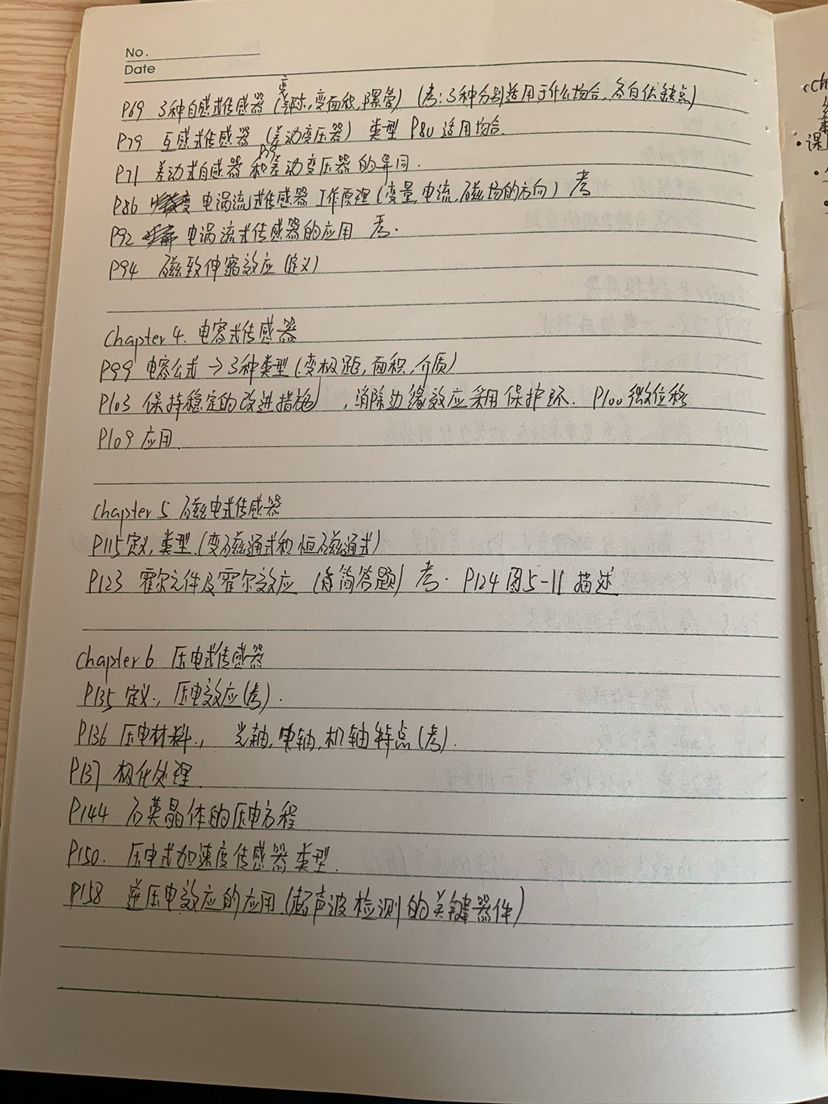 No.
Date
P69 3种自感式传感器(变气隙,变面积,螺管)(考:3种分别适用于什么场合,各自优缺点)
P79 互感式传感器(差动变压器) 类型 P80 适用场合.
P71 差动式自感器和差动变压器的异同.
P86 电涡流式传感器工作原理(变量,电流,磁场的方向)考
P92 电涡流式传感器的应用 考.
P94 磁致伸缩效应(定义)
Chapter 4. 电容式传感器
P99 电容公式→3种类型(变极距,面积,介质)
P103 保持稳定的改进措施,消除边缘效应采用保护环. P100微位移
P109 应用.
Chapter 5 磁电式传感器
P115定义,类型.(变磁通式和恒磁通式)
P123 霍尔元件及霍尔效应 (简答题) 考. P124图5-11 描述
Chapter 6 压电式传感器
P135 定义., 压电效应(考).
P136 压电材料., 光轴,电轴,机轴特点(考).
P137 极化处理.
P144 石英晶体的压电方程
P150. 压电式加速度传感器类型.
P158 逆压电效应的应用.(超声波检测的关键器件)